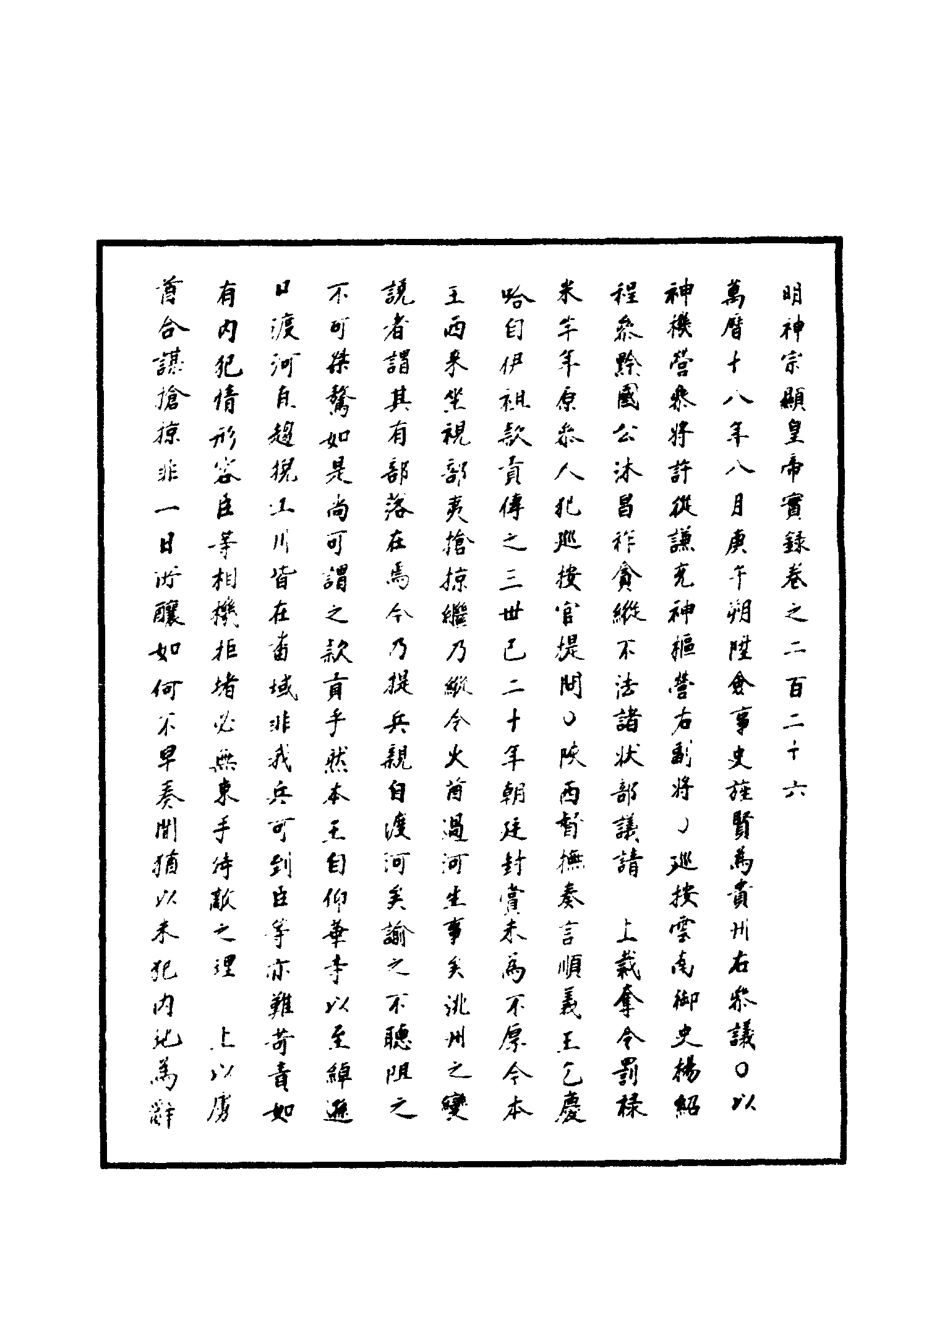 明神宗顯皇帝實錄卷之二百二十六
萬曆十八年八月庚午朔陞僉事史旌賢為貴州右參議○以
神機營參將許從謙充神樞營右副將○巡按雲南御史楊紹
程參黔國公沐昌祚貪縱不法諸狀部議請　上裁奪令罰祿
米半年原參人犯巡按官提問○陝西督撫奏言順義王乞慶
哈自伊祖款貢傳之三世已二十年朝廷封賞未為不厚今本
王西來坐視部夷搶掠繼乃縱令火酋過河生事矣洮州之變
說者謂其有部落在焉今乃提兵親自渡河矣諭之不聽阻之
不可桀驁如是尚可謂之款貢乎然本王自仰華寺以至綽遜
日渡河自趨捏工川皆在番域非我兵可到臣等亦難苛責如
有內犯情形容臣等相機拒堵必無束手待敵之理　上以虜
酋合謀搶掠非一日所釀如何不早奏聞猶以未犯內地為辭